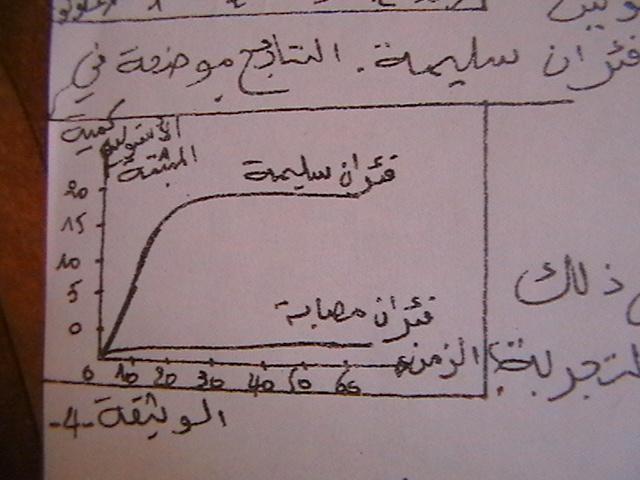 فئران سليمة. النتائج موضحة في
كمية
المثبتة
فئران سليمة
20
15
10
5
0
فئران مصابة
الزمن
0 10 20 30 40 50 60
ذلك
التجربة؟
الوثيقة -4-